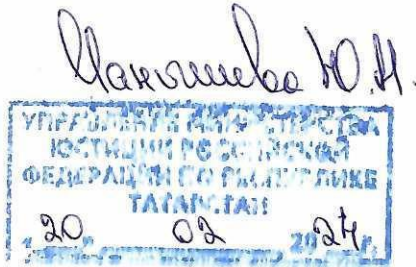 Ю.Н.
УПРАВЛЕНИЯ МИНИСТЕРСТВА
ЮСТИЦИИ РОССИЙСКОЙ
ФЕДЕРАЦИИ ПО РЕСПУБЛИКЕ
ТАТАРСТАН
20 02 2024 г.